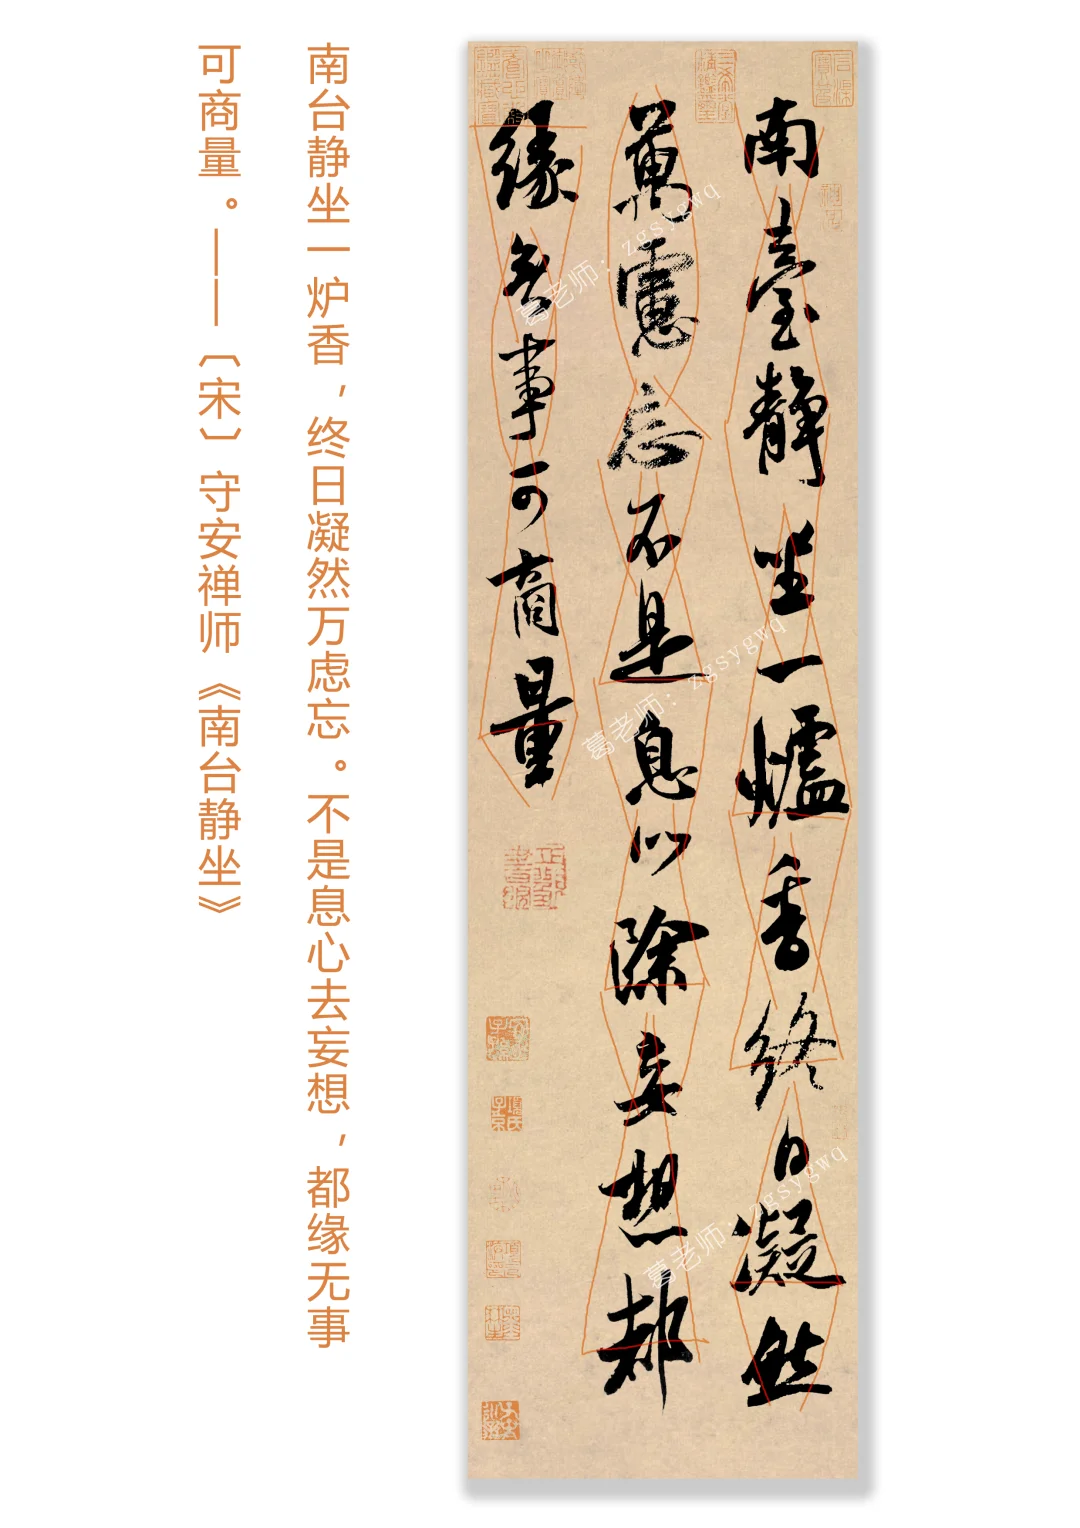 南臺靜坐一爐香終日凝然
萬慮忘不是息心除妄想都
緣無事可商量
南台静坐一炉香，终日凝然万虑忘。不是息心去妄想，都缘无事
可商量。——〔宋〕守安禅师《南台静坐》
葛老师：zgsygwq
葛老师：zgsygwq
葛老师：zgsygwq